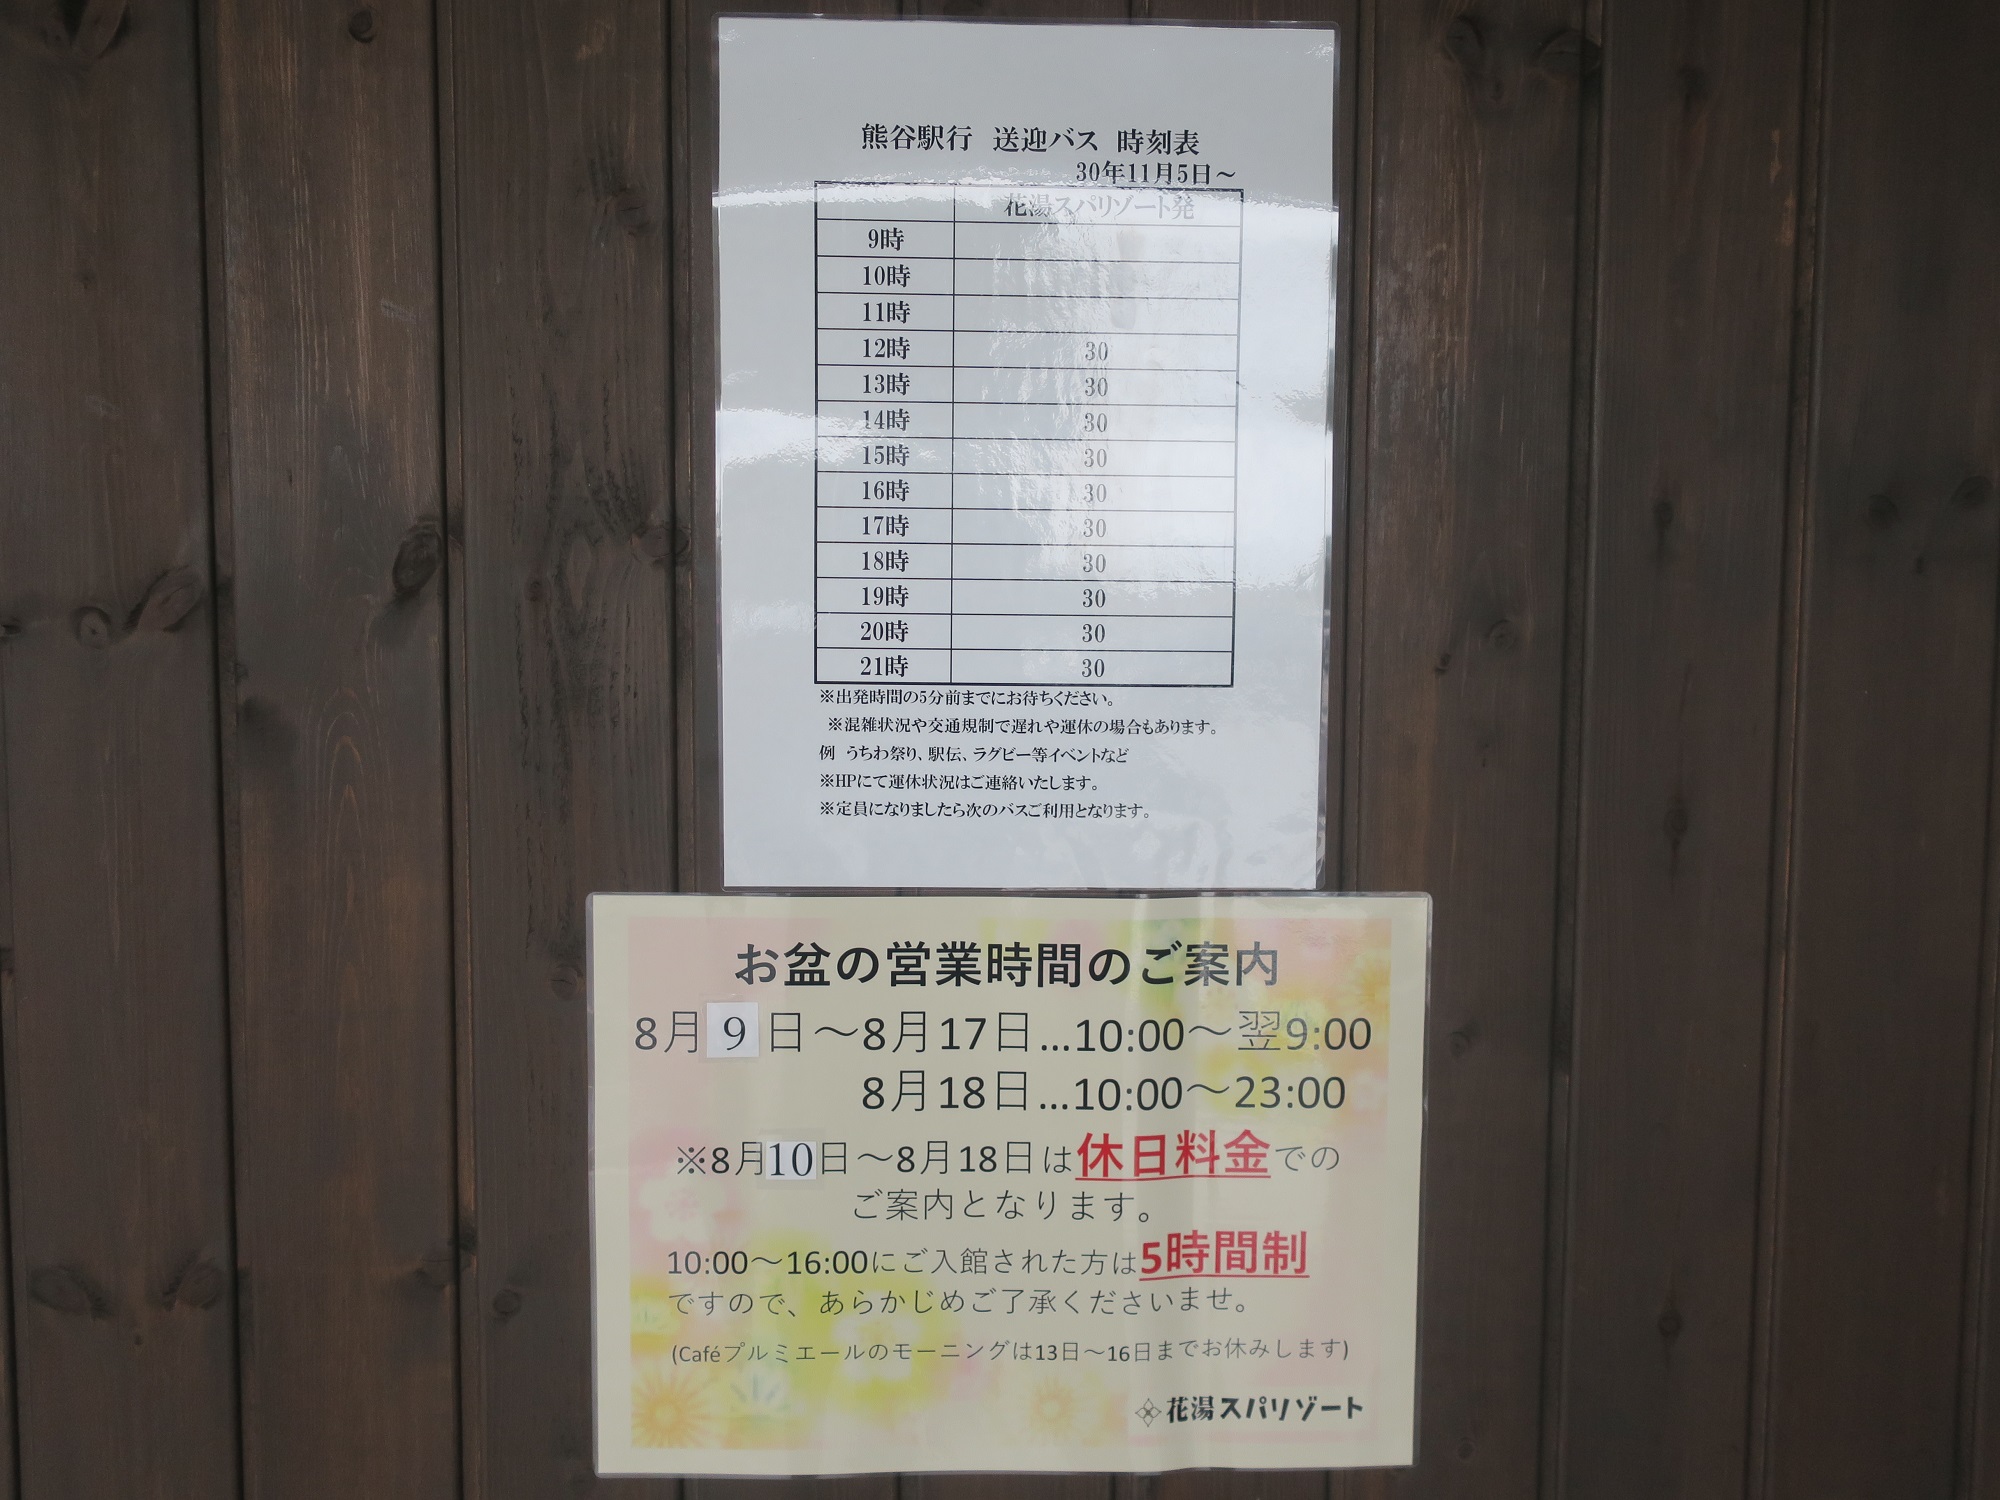 熊谷駅行 送迎バス 時刻表
30年11月5日～
花湯スパリゾート発
9時
10時
11時
12時 30
13時 30
14時 30
15時 30
16時 30
17時 30
18時 30
19時 30
20時 30
21時 30
※出発時間の5分前までにお待ちください。
※混雑状況や交通規制で遅れや運休の場合もあります。
例 うちわ祭り、駅伝、ラグビー等イベントなど
※HPにて運休状況はご連絡いたします。
※定員になりましたら次のバスご利用となります。
お盆の営業時間のご案内
8月9日～8月17日…10:00～翌9:00
8月18日…10:00～23:00
※8月10日～8月18日は休日料金での
ご案内となります。
10:00～16:00にご入館された方は5時間制
ですので、あらかじめご了承くださいませ。
(Caféプルミエールのモーニングは13日～16日までお休みします)
花湯スパリゾート